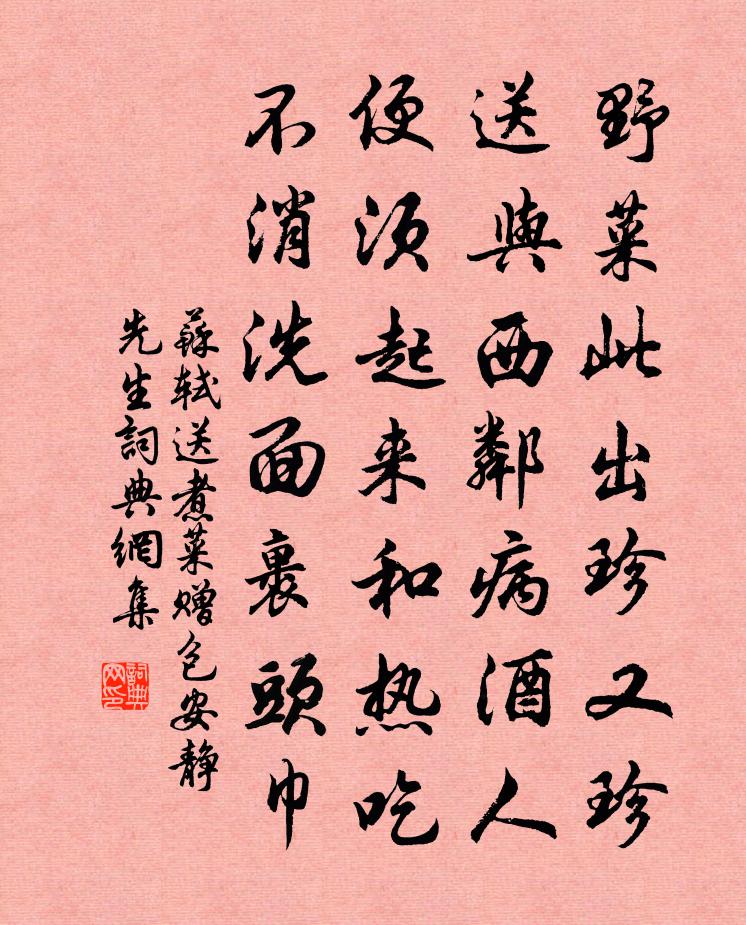 野菜此出珍又珍
送與西鄰病酒人
便须起来和热吃
不消洗面裹頭巾
蘇轼送煮菜赠包安静
先生詞典網集
詞典
网印